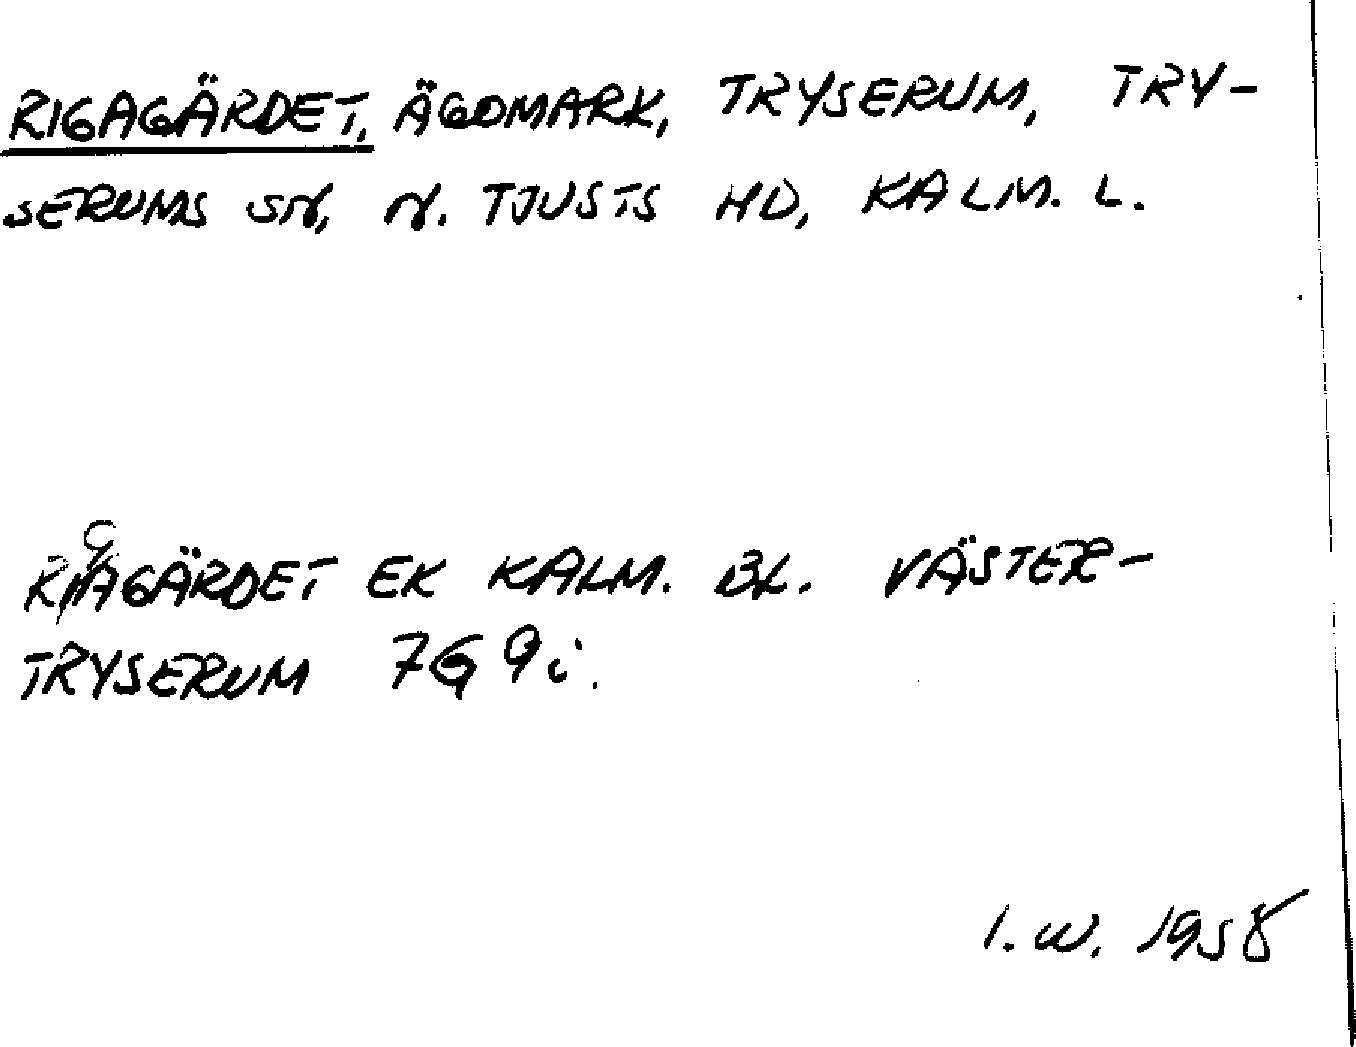 RIGAGÄRDET, ÄGOMARK, TRYSERUM, TRY-
SERUMS SN, N. TJUSTS HD, KALM. L.
RIGAGÄRDET EK KALM. BL. VÄSTER-
TRYSERUM 7G 9i.
I. W. 1958